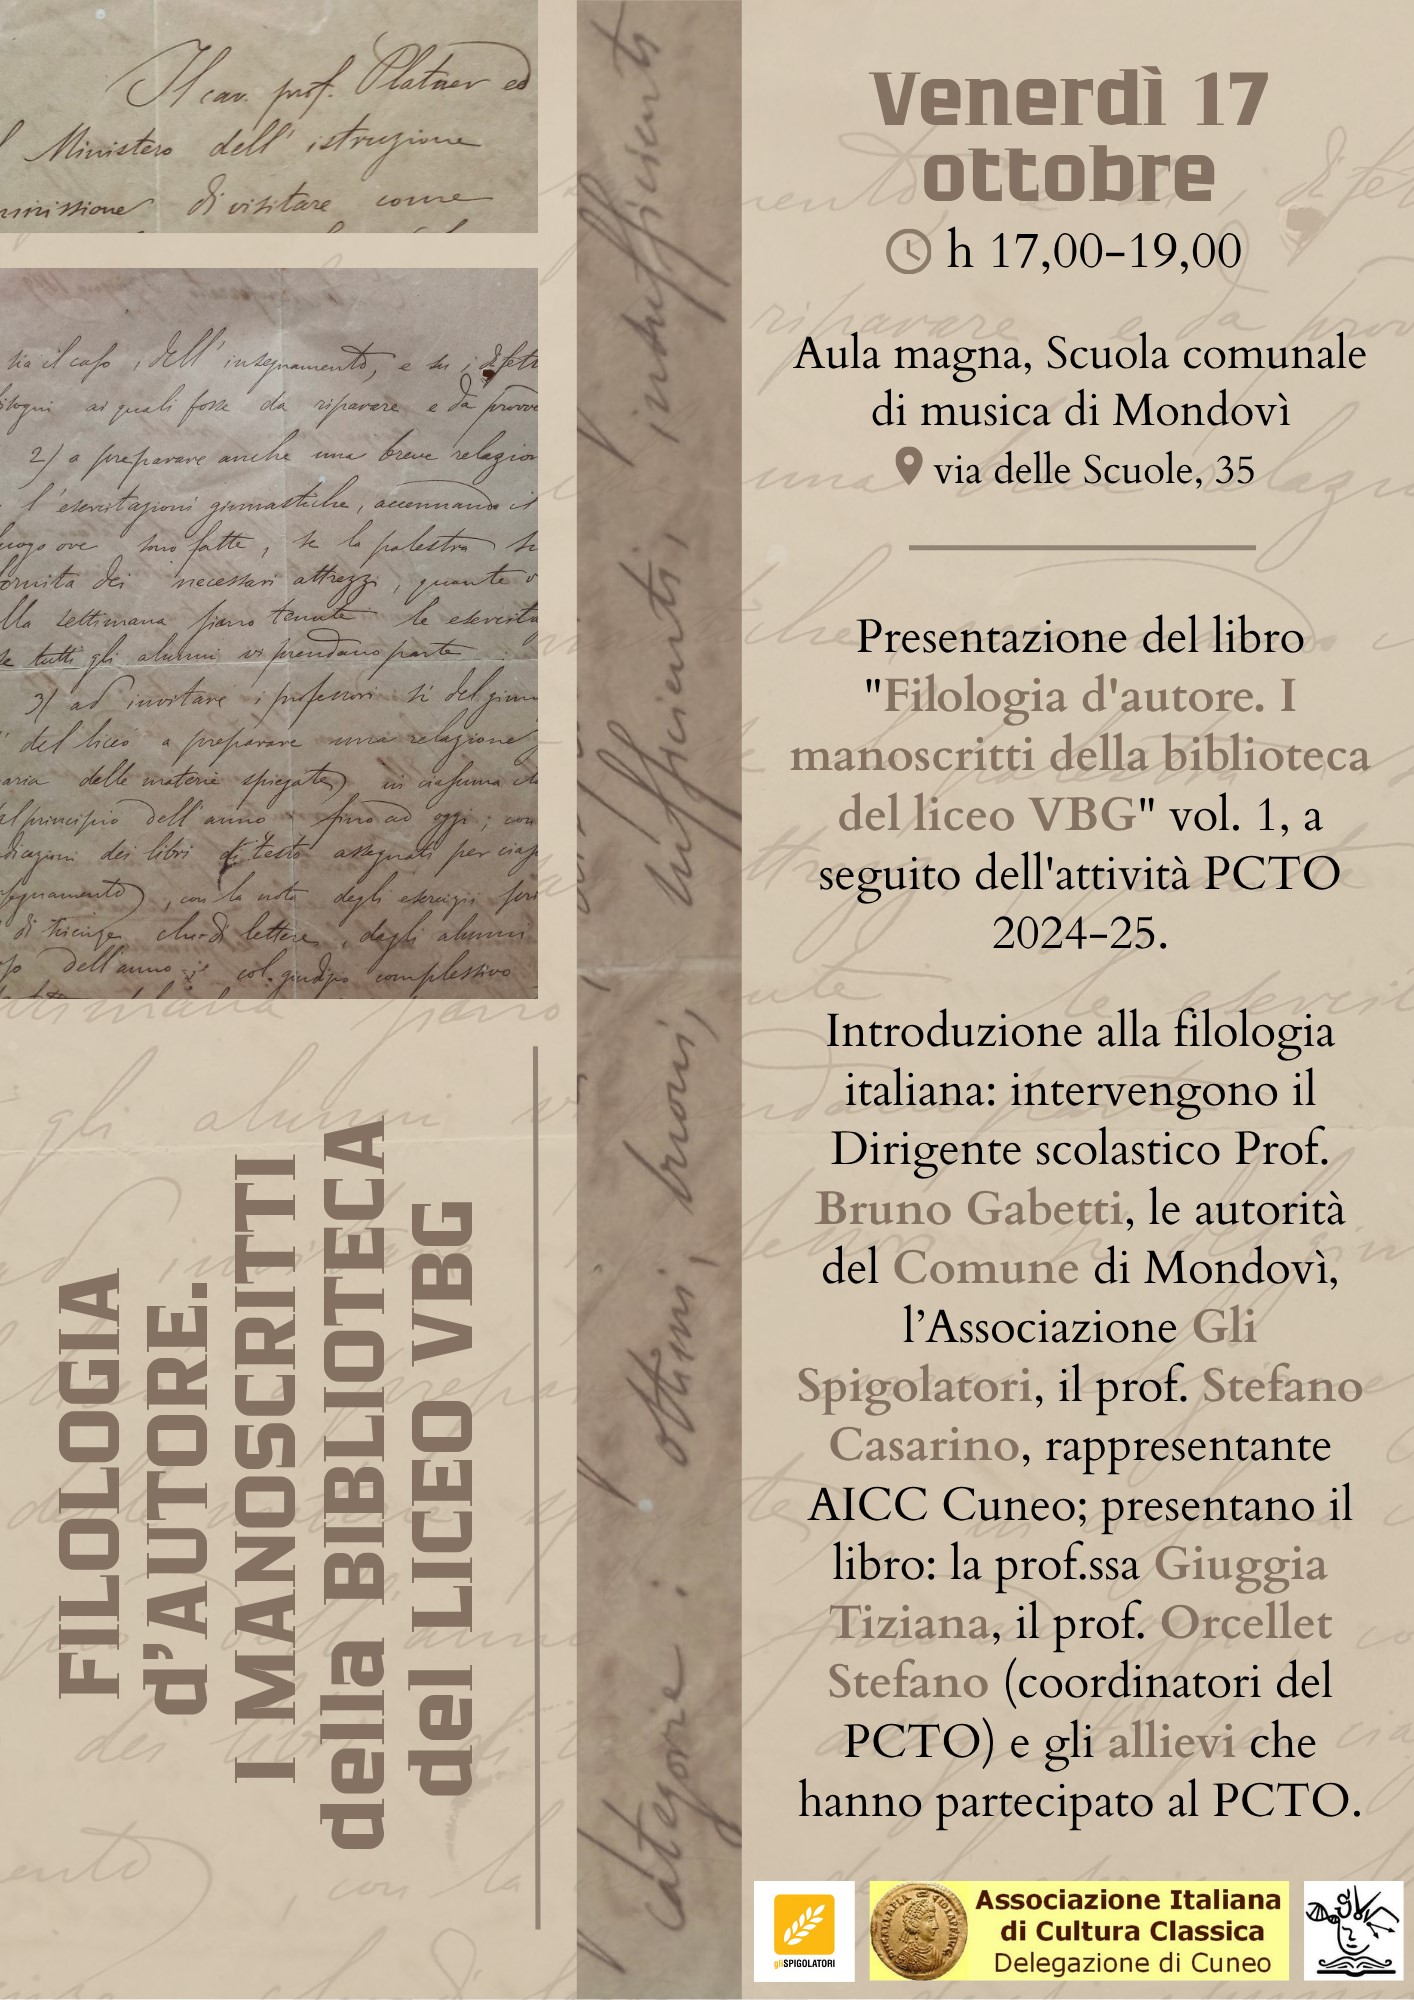 Il cav. prof. Platner ed
l Ministero dell'istruzione
mmissione di visitare come
sia il caso, dell'insegnamento, e su i difetti
bisogni ai quali fosse da riparare e da provve
2) a preparare anche una breve relazion
l'esercitazioni ginnastiche, accennando il
luogo ove sono fatte, se la palestra si
fornita dei necessari attrezzi, quante v
lla settimana siano tenute le esercita
se tutti gli alunni vi prendano parte
3) ad invitare i professori sì del ginn
del liceo a preparare una relazione
aria delle materie spiegate in ciascuna cl
al principio dell'anno fino ad oggi; con
dicazioni dei libri di testo assegnati per cias
segnamento), con la nota degli esercizi
di scienze che di lettere, dagli alunni
dell'anno; col giudizio complessivo
FILOLOGIA
d'AUTORE.
I MANOSCRITTI
della BIBLIOTECA
del LICEO VBG
categorie: ottimi, buoni, sufficienti, insufficienti
Venerdì 17
ottobre
h 17,00-19,00
Aula magna, Scuola comunale
di musica di Mondovì
via delle Scuole, 35
Presentazione del libro
"Filologia d'autore. I
manoscritti della biblioteca
del liceo VBG" vol. 1, a
seguito dell'attività PCTO
2024-25.
Introduzione alla filologia
italiana: intervengono il
Dirigente scolastico Prof.
Bruno Gabetti, le autorità
del Comune di Mondovì,
l’Associazione Gli
Spigolatori, il prof. Stefano
Casarino, rappresentante
AICC Cuneo; presentano il
libro: la prof.ssa Giuggia
Tiziana, il prof. Orcellet
Stefano (coordinatori del
PCTO) e gli allievi che
hanno partecipato al PCTO.
gliSPIGOLATORI
Associazione Italiana
di Cultura Classica
Delegazione di Cuneo